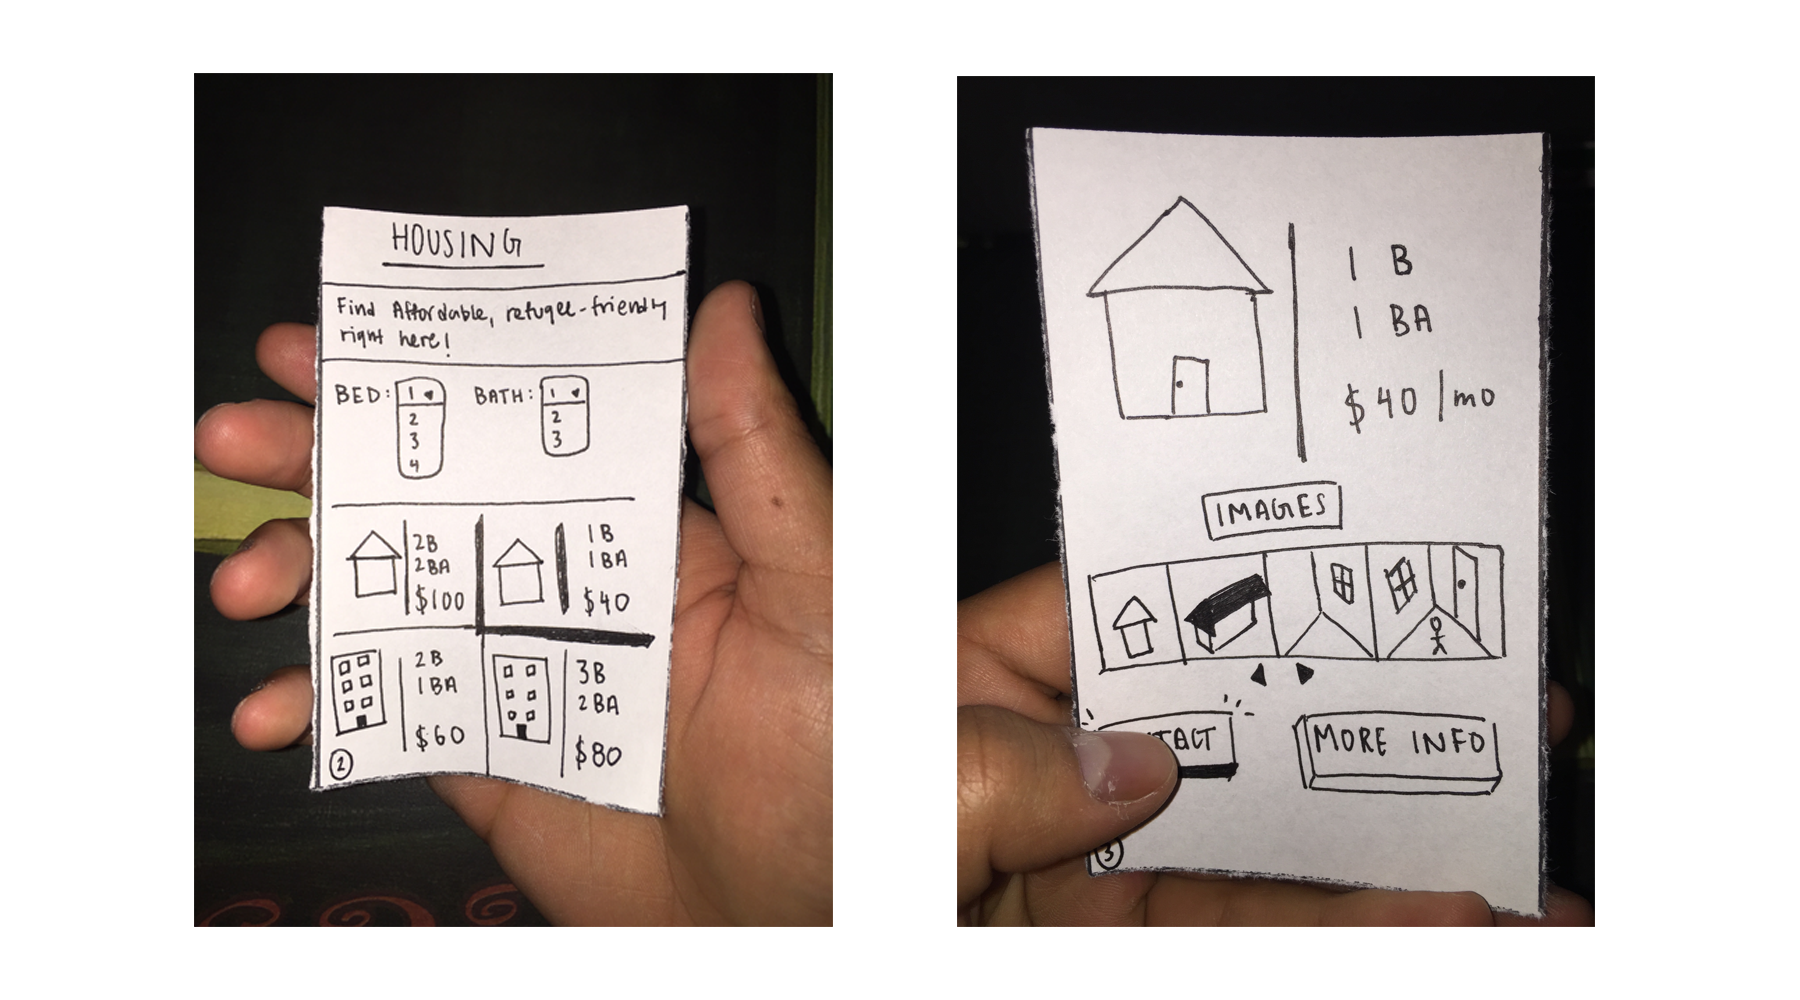 HOUSING
Find Affordable, refugee-friendly
right here!
BED: 1 BATH: 1
2 2
3 3
4
2B
2BA
$100
1B
1BA
$40
2B
1BA
$60
3B
2BA
$80
2
1 B
1 BA
$40/mo
IMAGES
TACT
MORE INFO
3